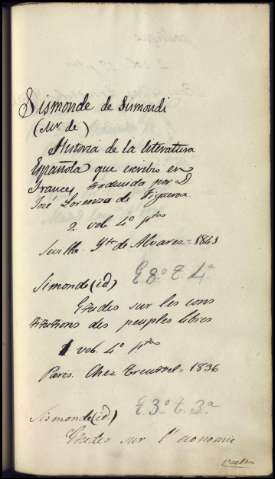 Sismonde de Sismondi
(Mr de)
Historia de la literatura
Española que escribio en
Frances, traducida por D
José Lorenzo de Figueroa
2. vol. 4º ptas
Sevilla. Yta de Alvarez = 1843
E 8º T. 4ª
Simonde (id)
Etudes sur les cons
titutions des peuples libres
1 vol. 4º ptas
Paris. Chez Treuttel = 1836
E. 3º T. 3ª
Sismonde (id)
Etudes sur l'economie